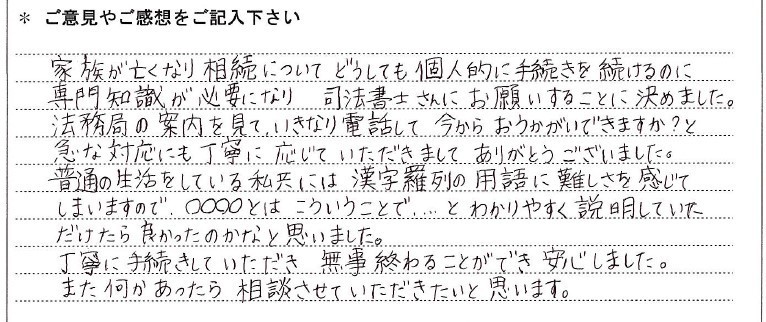 ＊ ご意見やご感想をご記入下さい
家族が亡くなり相続について どうしても個人的に手続きを続けるのに
専門知識が必要になり 司法書士さんにお願いすることに決めました。
法務局の案内を見て、いきなり電話して 今からおうかがいできますか？と
急な対応にも丁寧に応じていただきまして ありがとうございました。
普通の生活をしている私共には 漢字羅列の用語に難しさを感じて
しまいますので、〇〇〇〇とは こういうことで、...と わかりやすく説明していた
だけたら良かったのかなと思いました。
丁寧に手続きしていただき 無事終わることができ 安心しました。
また何かあったら 相談させていただきたいと思います。